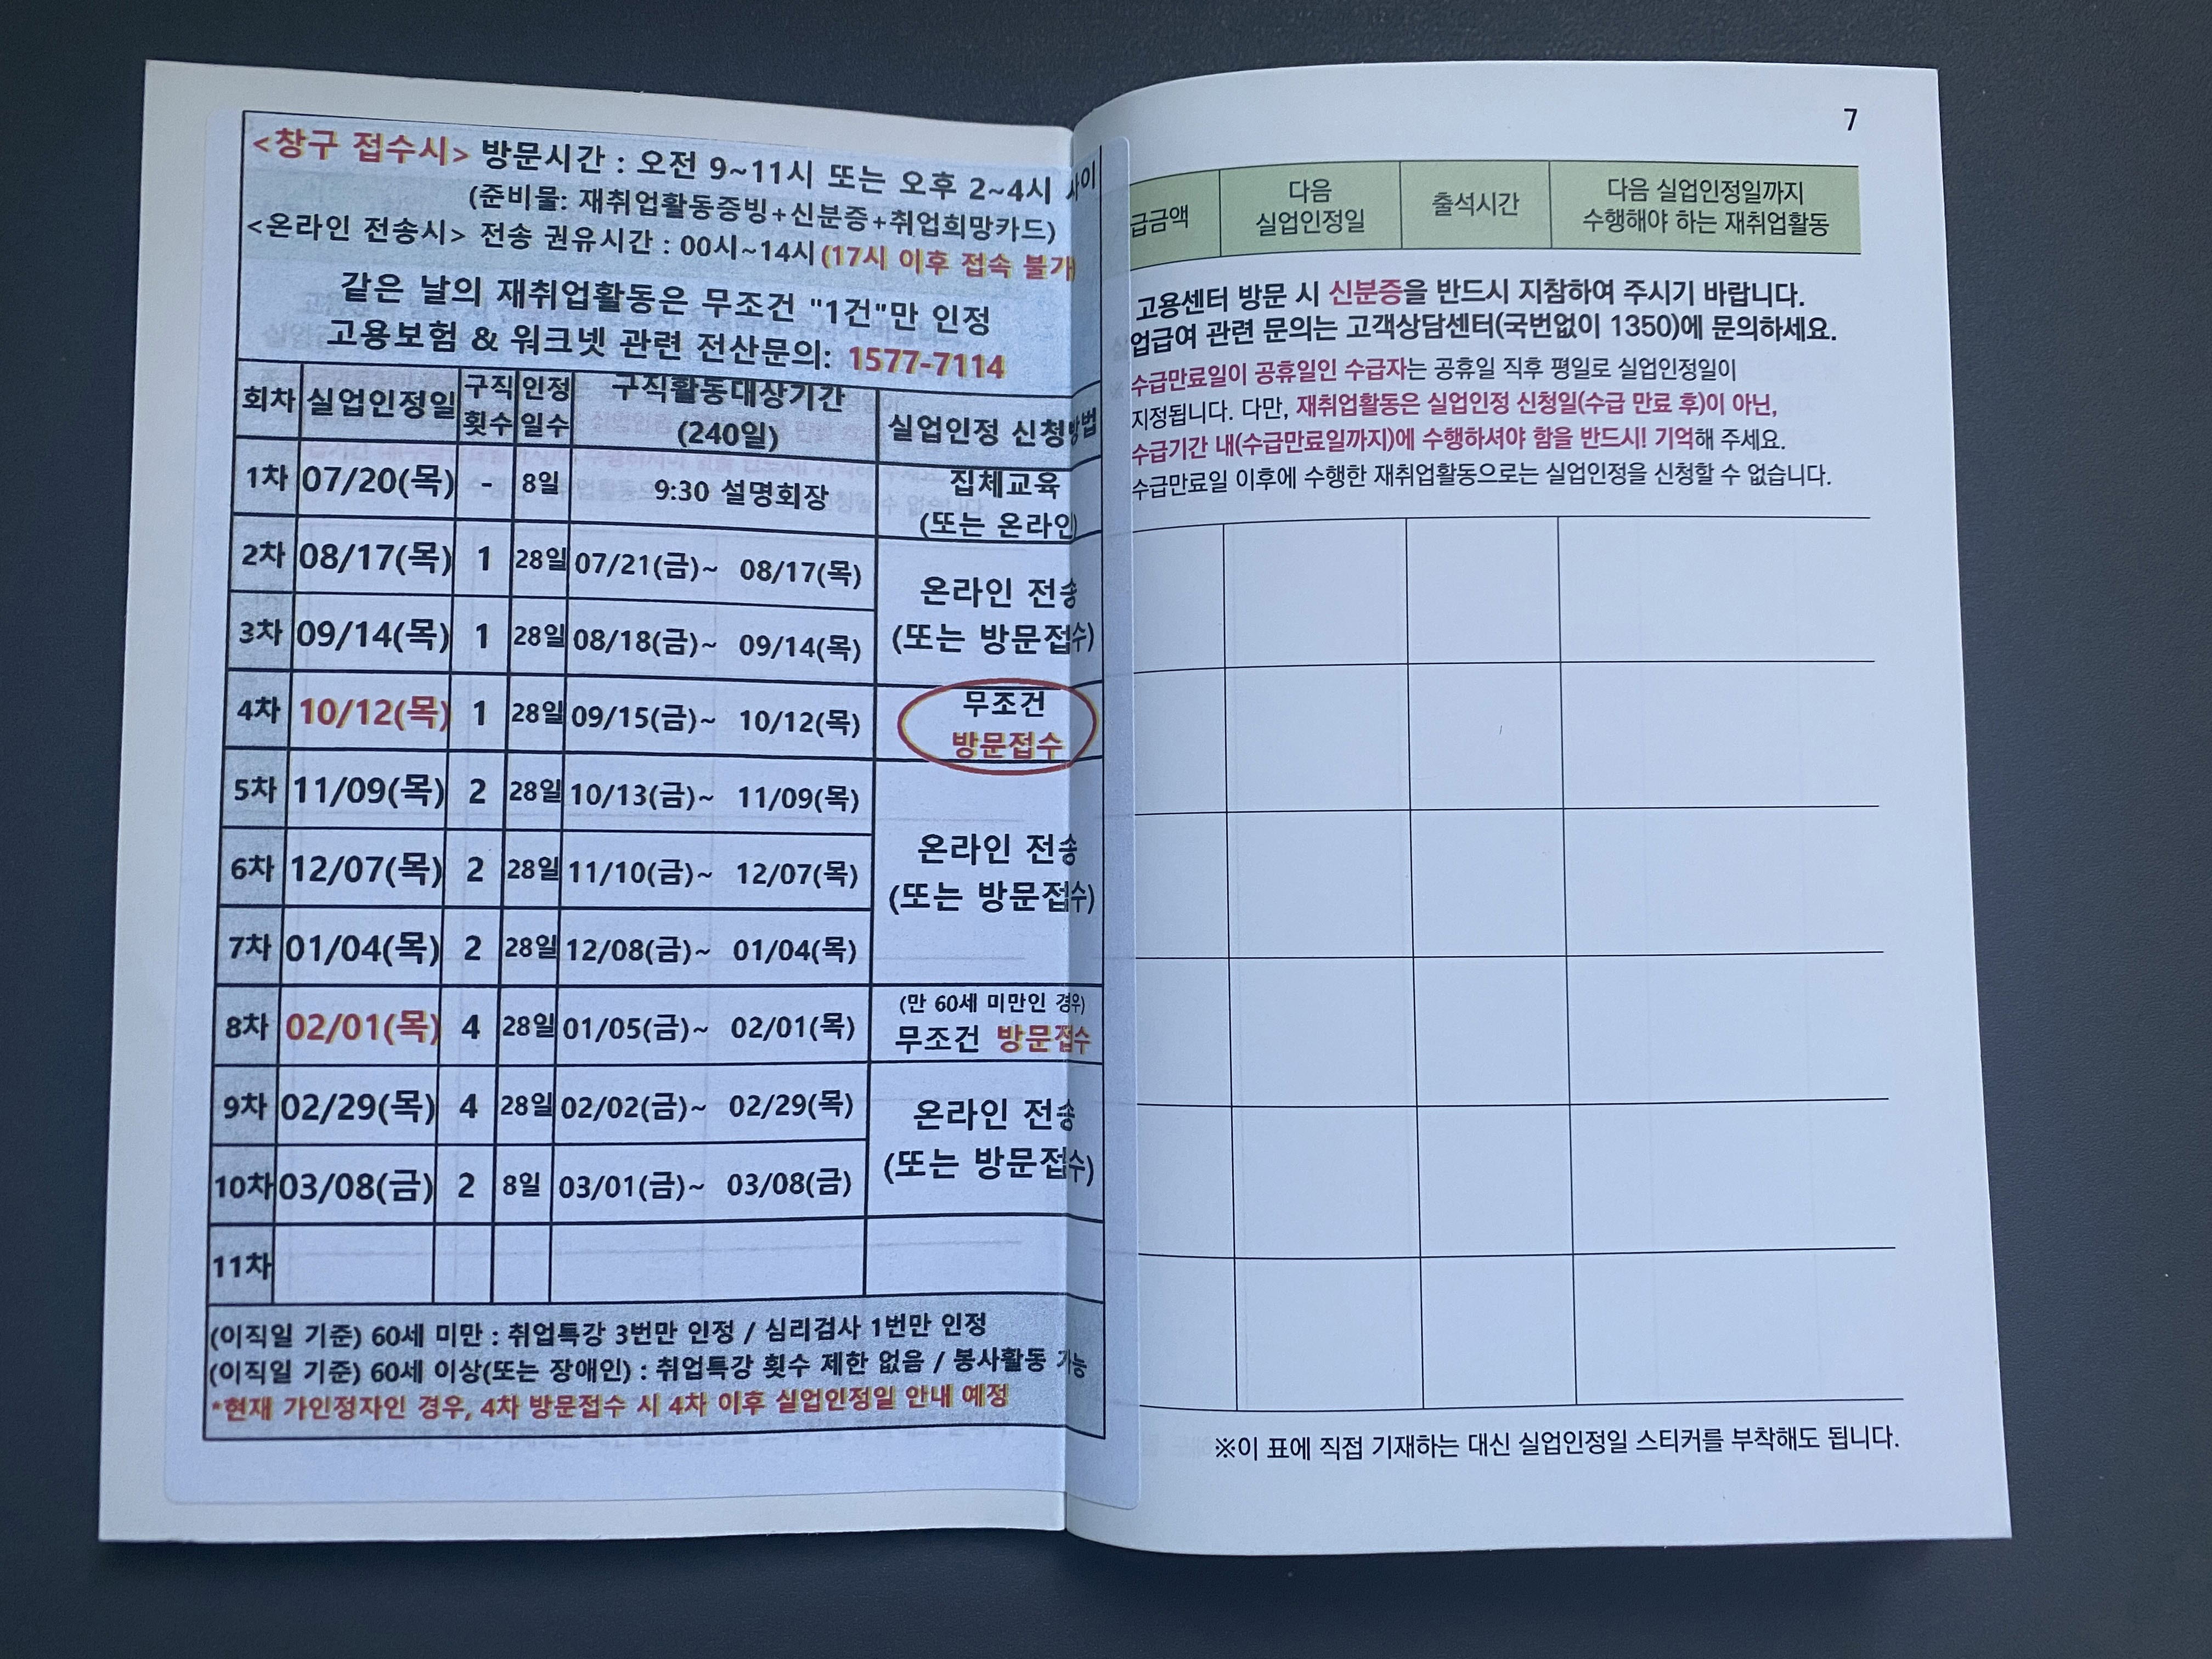 <창구 접수시> 방문시간 : 오전 9~11시 또는 오후 2~4시 사이
(준비물: 재취업활동증빙+신분증+취업희망카드)
<온라인 전송시> 전송 권유시간 : 00시~14시(17시 이후 접속 불가)
같은 날의 재취업활동은 무조건 "1건"만 인정
고용보험 & 워크넷 관련 전산문의: 1577-7114
회차 실업인정일 구직횟수 인정일수 구직활동대상기간(240일) 실업인정 신청방법
1차 07/20(목) - 8일 9:30 설명회장 집체교육
(또는 온라인)
2차 08/17(목) 1 28일 07/21(금)~ 08/17(목)
온라인 전송
(또는 방문접수)
3차 09/14(목) 1 28일 08/18(금)~ 09/14(목)
4차 10/12(목) 1 28일 09/15(금)~ 10/12(목) 무조건
방문접수
5차 11/09(목) 2 28일 10/13(금)~ 11/09(목)
6차 12/07(목) 2 28일 11/10(금)~ 12/07(목) 온라인 전송
(또는 방문접수)
7차 01/04(목) 2 28일 12/08(금)~ 01/04(목)
8차 02/01(목) 4 28일 01/05(금)~ 02/01(목) (만 60세 미만인 경우)
무조건 방문접수
9차 02/29(목) 4 28일 02/02(금)~ 02/29(목) 온라인 전송
(또는 방문접수)
10차 03/08(금) 2 8일 03/01(금)~ 03/08(금)
11차
(이직일 기준) 60세 미만 : 취업특강 3번만 인정 / 심리검사 1번만 인정
(이직일 기준) 60세 이상(또는 장애인) : 취업특강 횟수 제한 없음 / 봉사활동 가능
*현재 가인정자인 경우, 4차 방문접수 시 4차 이후 실업인정일 안내 예정
7
급금액
다음
실업인정일
출석시간
다음 실업인정일까지
수행해야 하는 재취업활동
고용센터 방문 시 신분증을 반드시 지참하여 주시기 바랍니다.
업급여 관련 문의는 고객상담센터(국번없이 1350)에 문의하세요.
수급만료일이 공휴일인 수급자는 공휴일 직후 평일로 실업인정일이
지정됩니다. 다만, 재취업활동은 실업인정 신청일(수급 만료 후)이 아닌,
수급기간 내(수급만료일까지)에 수행하셔야 함을 반드시! 기억해 주세요.
수급만료일 이후에 수행한 재취업활동으로는 실업인정을 신청할 수 없습니다.
※이 표에 직접 기재하는 대신 실업인정일 스티커를 부착해도 됩니다.